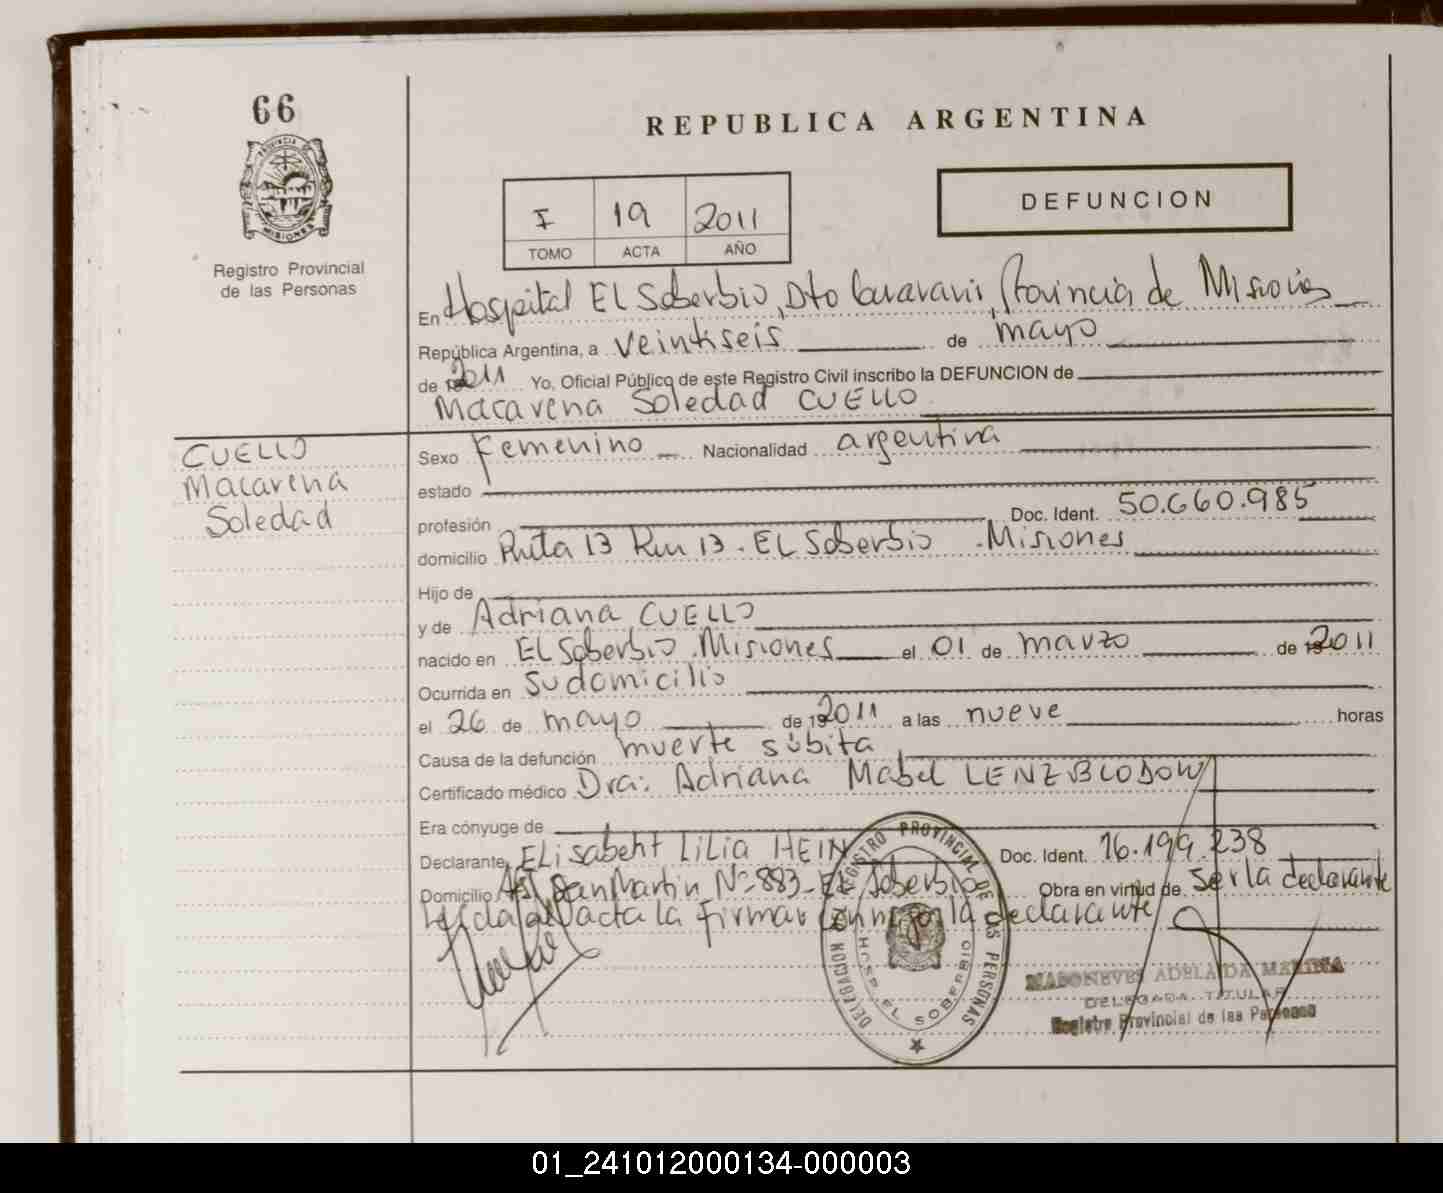 66
REPUBLICA ARGENTINA
PROVINCIA DE
MISIONES
Registro Provincial
de las Personas
I 19 2011
TOMO ACTA AÑO
DEFUNCION
En Hospital EL Soberbio, Dto Guaravani, Provincia de Misiones
República Argentina, a veintiseis de mayo
de 2011 Yo, Oficial Público de este Registro Civil inscribo la DEFUNCION de
Macarena Soledad CUELLO
CUELLO
Macarena
Soledad
Sexo Femenino Nacionalidad argentina
estado
profesión Doc. Ident. 50.660.985
domicilio Ruta 13 Km 13. EL Soberbio. Misiones
Hijo de
y de Adriana CUELLO
nacido en EL Soberbio. Misiones el 01 de marzo de 2011
Ocurrida en su domicilio
el 26 de mayo de 2011 a las nueve horas
Causa de la defunción muerte súbita
Certificado médico Dra: Adriana Mabel LENZ BLODOW
Era cónyuge de
Declarante ELisabeht LiLia HEIN Doc. Ident. 16.199.238
Domicilio San Martin Nº 883 - EL Soberbio Obra en virtud de ser la declarante
Leida el acta la firmar la declarante
DELEGACION REGISTRO PROVINCIAL DE LAS PERSONAS
HOSP. EL SOBERBIO
ADELAIDA
DELEGADA TITULAR
Registro Provincial de las Personas
01_241012000134-000003